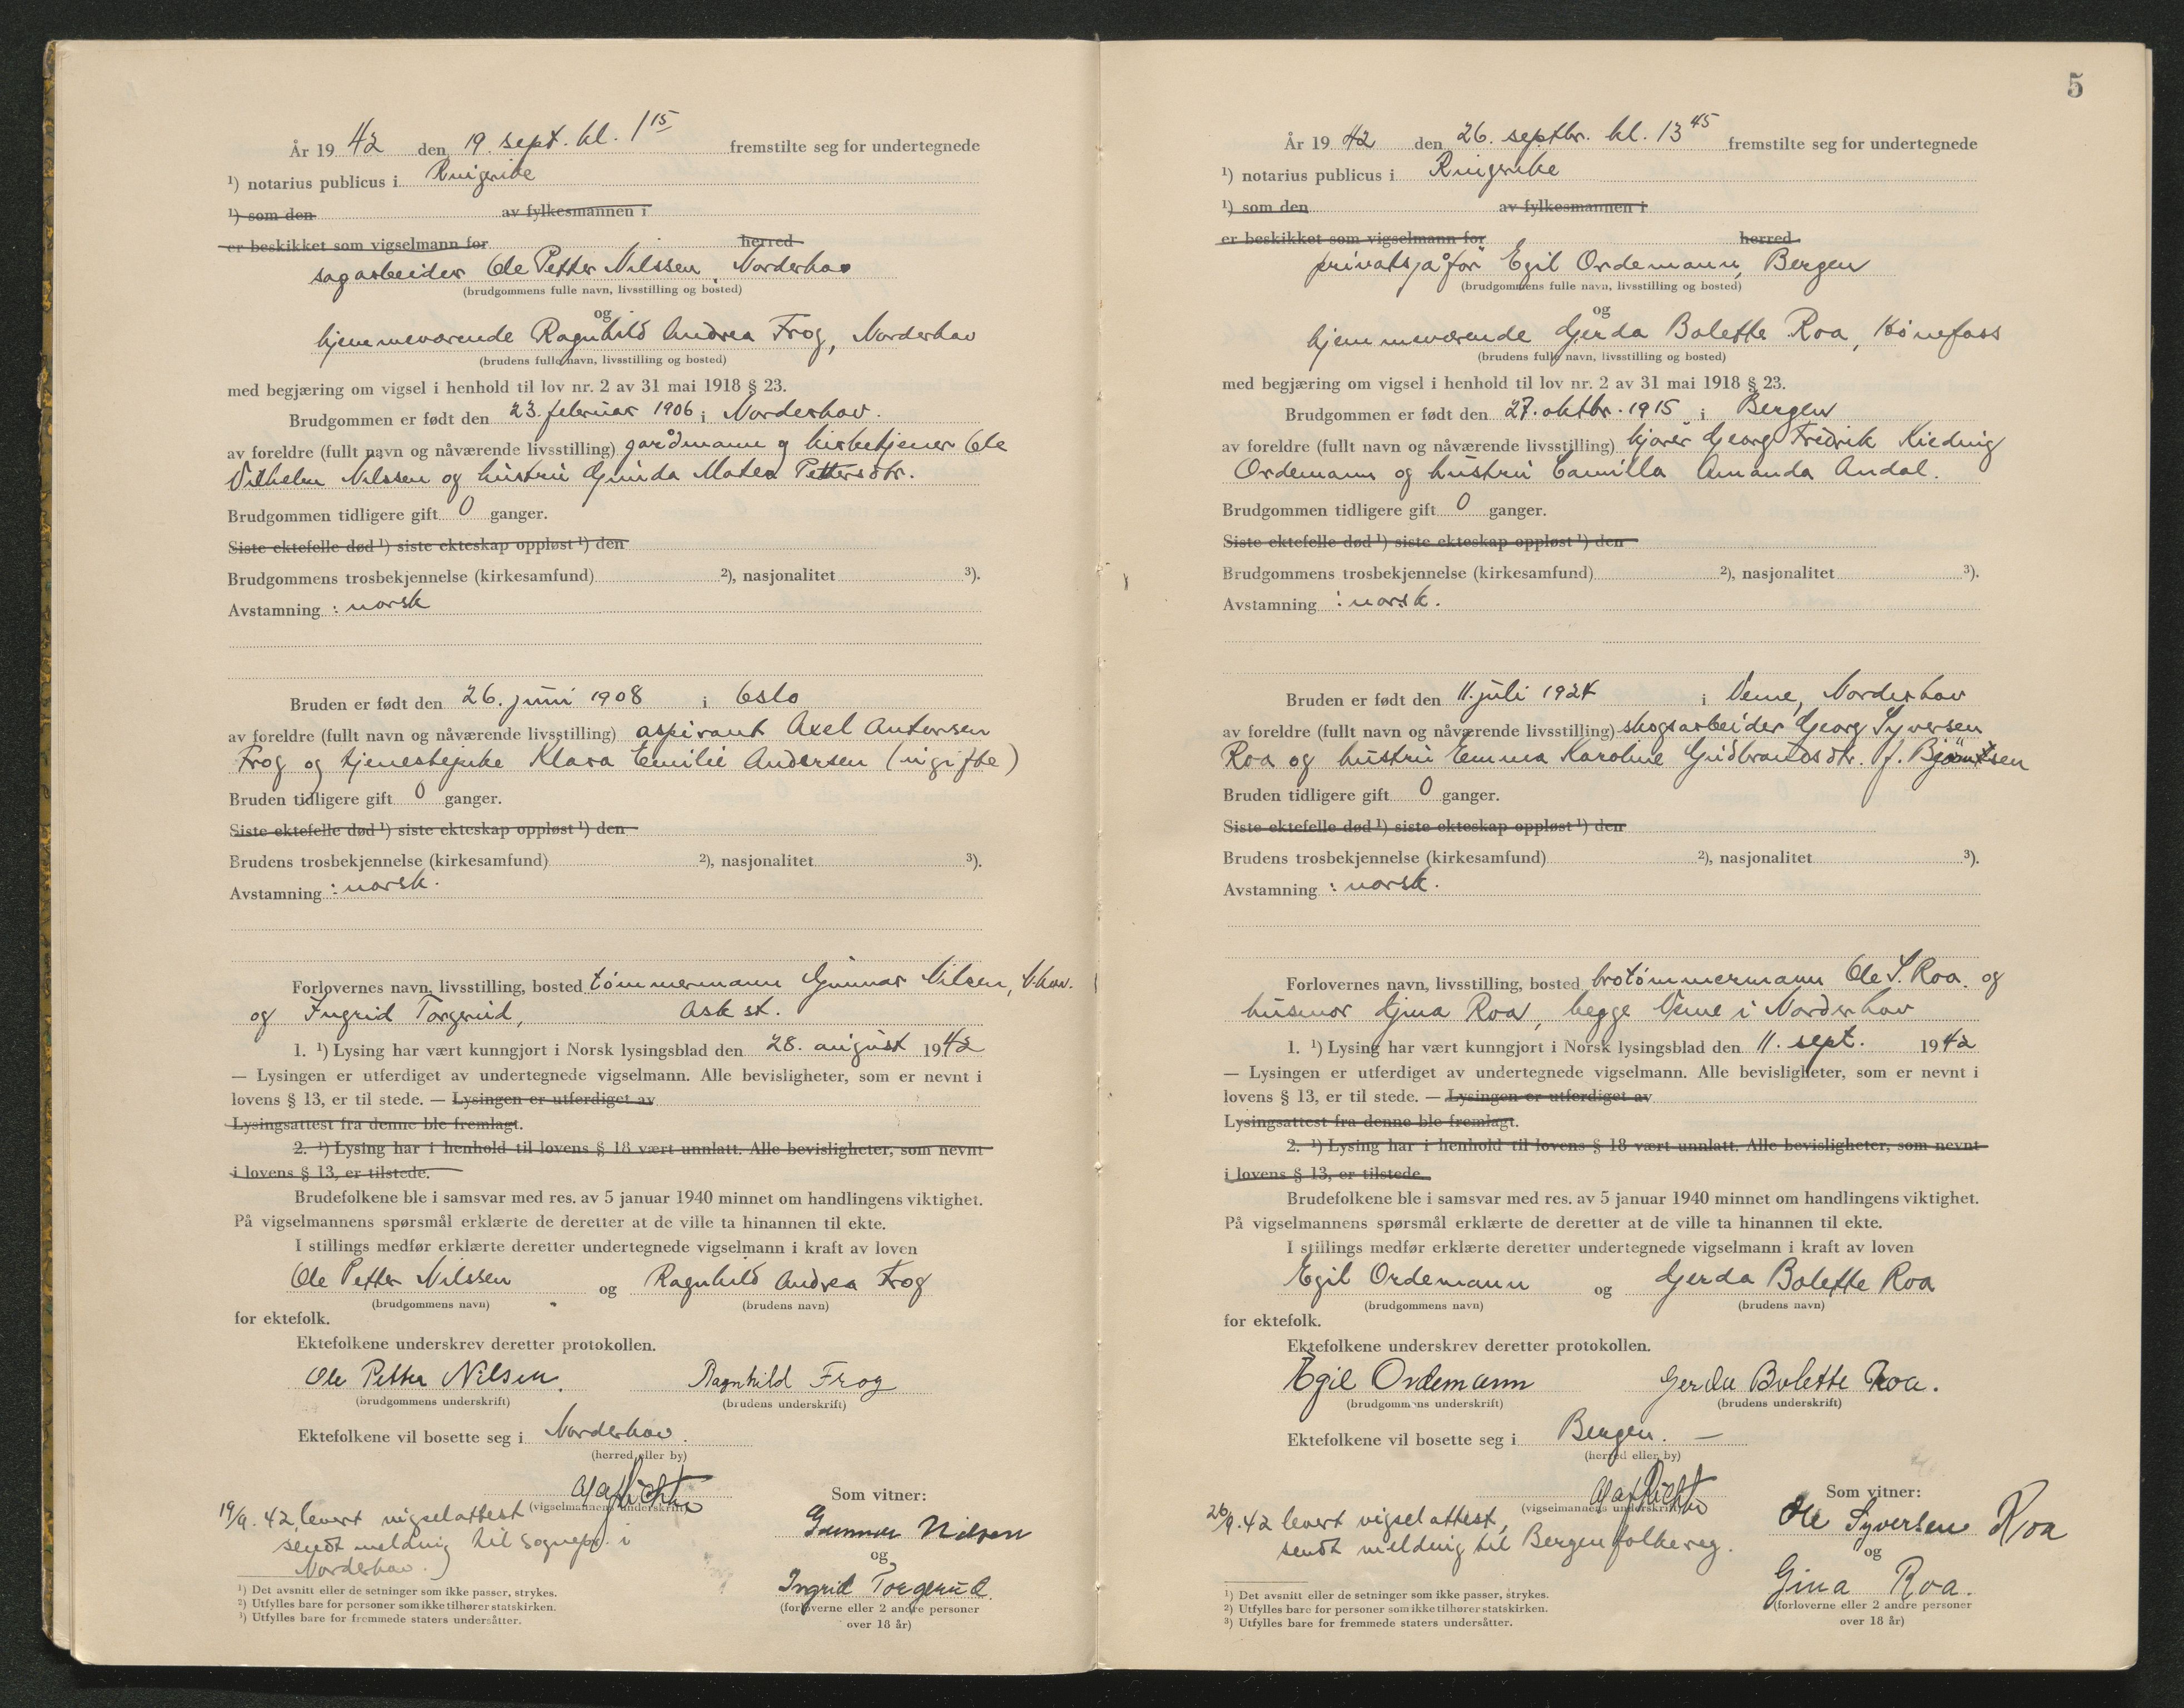 År 19 42 den 19. sept. kl. 1 15 fremstilte seg for undertegnede
¹) notarius publicus i Ringerike
¹) som den av fylkesmannen i
er beskikket som vigselmann for herred
sagarbeider Ole Petter Nilssen, Norderhov
(brudgommens fulle navn, livsstilling og bosted)
og
hjemmeværende Ragnhild Andrea Frog, Norderhov
(brudens fulle navn, livsstilling og bosted)
med begjæring om vigsel i henhold til lov nr. 2 av 31 mai 1918 § 23.
Brudgommen er født den 23. februar 1906 i Norderhov.
av foreldre (fullt navn og nåværende livsstilling) gårdmann og kirketjener Ole
Vilhelm Nilssen og hustru Gunda Matea Pettersdtr.
Brudgommen tidligere gift 0 ganger.
Siste ektefelle død ¹) siste ekteskap oppløst ¹) den
Brudgommens trosbekjennelse (kirkesamfund) ²), nasjonalitet ³).
Avstamning : norsk
Bruden er født den 26. juni 1908 i Oslo
av foreldre (fullt navn og nåværende livsstilling) aspirant Axel Antonsen
Frog og tjenestepike Klara Emilie Andersen (ugifte)
Bruden tidligere gift 0 ganger.
Siste ektefelle død ¹) siste ekteskap oppløst ¹) den
Brudens trosbekjennelse (kirkesamfund) ²), nasjonalitet ³).
Avstamning : norsk.
Forlovernes navn, livsstilling, bosted tömmermann Gunnar Nilsen, N.hov.
og Ingrid Torgerud, Ask st.
1. ¹) Lysing har vært kunngjort i Norsk lysingsblad den 28. august 1942
— Lysingen er utferdiget av undertegnede vigselmann. Alle bevisligheter, som er nevnt i
lovens § 13, er til stede. — Lysingen er utferdiget av
Lysingsattest fra denne ble fremlagt.
2. ¹) Lysing har i henhold til lovens § 18 vært unnlatt. Alle bevisligheter, som nevnt
i lovens § 13, er tilstede.
Brudefolkene ble i samsvar med res. av 5 januar 1940 minnet om handlingens viktighet.
På vigselmannens spørsmål erklærte de deretter at de ville ta hinannen til ekte.
I stillings medfør erklærte deretter undertegnede vigselmann i kraft av loven
Ole Petter Nilssen og Ragnhild Andrea Frog
(brudgommens navn) (brudens navn)
for ektefolk.
Ektefolkene underskrev deretter protokollen.
Ole Petter Nilsen. Ragnhild Frog
(brudgommens underskrift) (brudens underskrift)
Ektefolkene vil bosette seg i Norderhov.
(herred eller by)
(vigselmannens underskrift)
19/9. 42 levert vigselattest
sendt melding til sognepr. i
Norderhov.
Som vitner:
Gunnar Nilsen
og
Ingrid Torgerud.
(forloverne eller 2 andre personer
over 18 år)
¹) Det avsnitt eller de setninger som ikke passer, strykes.
²) Utfylles bare for personer som ikke tilhører statskirken.
³) Utfylles bare for fremmede staters undersåtter.
5
År 19 42 den 26. septbr. kl. 13 45 fremstilte seg for undertegnede
¹) notarius publicus i Ringerike
¹) som den av fylkesmannen i
er beskikket som vigselmann for herred
privatsjåfør Egil Ordemann, Bergen
(brudgommens fulle navn, livsstilling og bosted)
og
hjemmeværende Gerda Bolette Roa, Hönefoss
(brudens fulle navn, livsstilling og bosted)
med begjæring om vigsel i henhold til lov nr. 2 av 31 mai 1918 § 23.
Brudgommen er født den 27. oktbr. 1915 i Bergen
av foreldre (fullt navn og nåværende livsstilling) Georg Fredrik
Ordemann og hustru Camilla Amanda Andal.
Brudgommen tidligere gift 0 ganger.
Siste ektefelle død ¹) siste ekteskap oppløst ¹) den
Brudgommens trosbekjennelse (kirkesamfund) ²), nasjonalitet ³).
Avstamning : norsk.
Bruden er født den 11. juli 1924 i Veme, Norderhov
av foreldre (fullt navn og nåværende livsstilling) skogsarbeider Georg Syversen
Roa og hustru Emma Karoline Gudbrandsdtr. f.
Bruden tidligere gift 0 ganger.
Siste ektefelle død ¹) siste ekteskap oppløst ¹) den
Brudens trosbekjennelse (kirkesamfund) ²), nasjonalitet ³).
Avstamning : norsk.
Forlovernes navn, livsstilling, bosted brotömmermann Ole S. Roa. og
husmor Gina Roa, begge Veme i Norderhov
1. ¹) Lysing har vært kunngjort i Norsk lysingsblad den 11. sept. 1942
— Lysingen er utferdiget av undertegnede vigselmann. Alle bevisligheter, som er nevnt i
lovens § 13, er til stede. — Lysingen er utferdiget av
Lysingsattest fra denne ble fremlagt.
2. ¹) Lysing har i henhold til lovens § 18 vært unnlatt. Alle bevisligheter, som nevnt
i lovens § 13, er tilstede.
Brudefolkene ble i samsvar med res. av 5 januar 1940 minnet om handlingens viktighet.
På vigselmannens spørsmål erklærte de deretter at de ville ta hinannen til ekte.
I stillings medfør erklærte deretter undertegnede vigselmann i kraft av loven
Egil Ordemann og Gerda Bolette Roa
(brudgommens navn) (brudens navn)
for ektefolk.
Ektefolkene underskrev deretter protokollen.
Egil Ordemann Gerda Bolette Roa.
(brudgommens underskrift) (brudens underskrift)
Ektefolkene vil bosette seg i Bergen. —
(herred eller by)
(vigselmannens underskrift)
26/9. 42 levert vigselattest,
sendt melding til Bergen folkereg.
Som vitner:
Ole Syversen Roa
og
Gina Roa.
(forloverne eller 2 andre personer
over 18 år)
¹) Det avsnitt eller de setninger som ikke passer, strykes.
²) Utfylles bare for personer som ikke tilhører statskirken.
³) Utfylles bare for fremmede staters undersåtter.